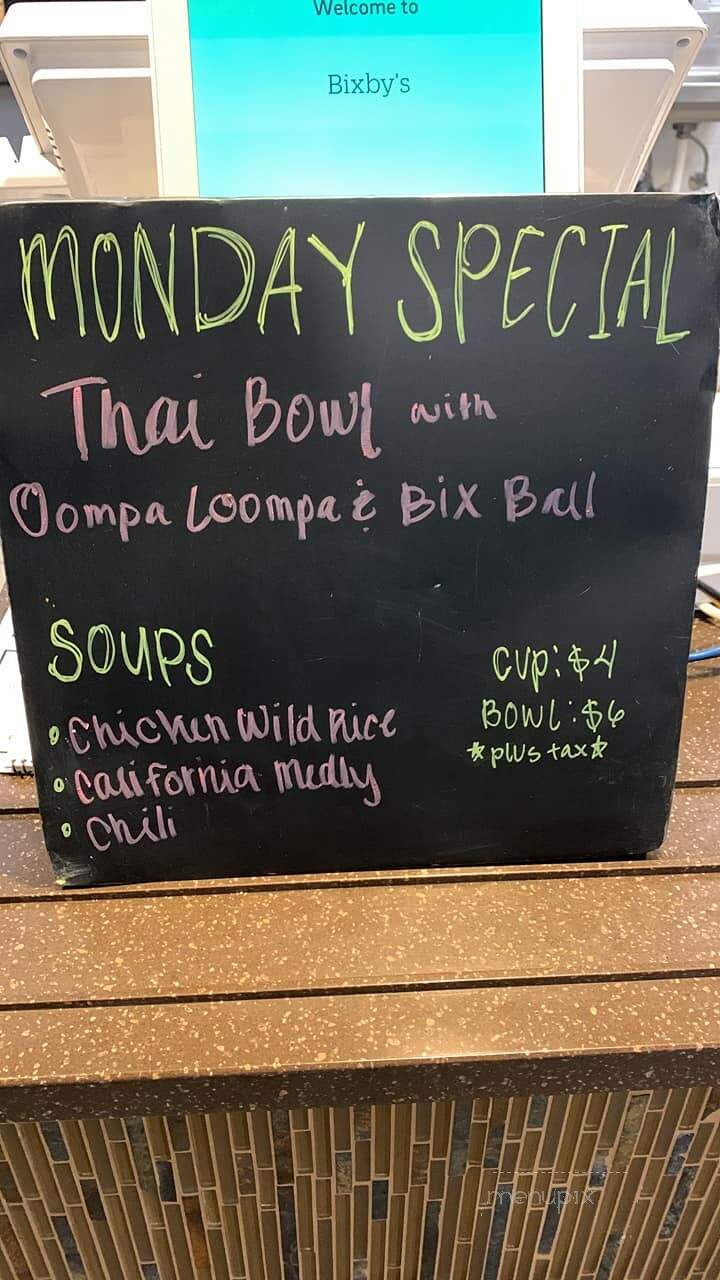 Welcome to
Bixby's
MONDAY SPECIAL
Thai Bowl with
Oompa Loompa & Bix Ball
SOUPS
Cup: $4
Chicken Wild Rice
BOWL: $6
*plus tax*
California Medly
Chili
menupix